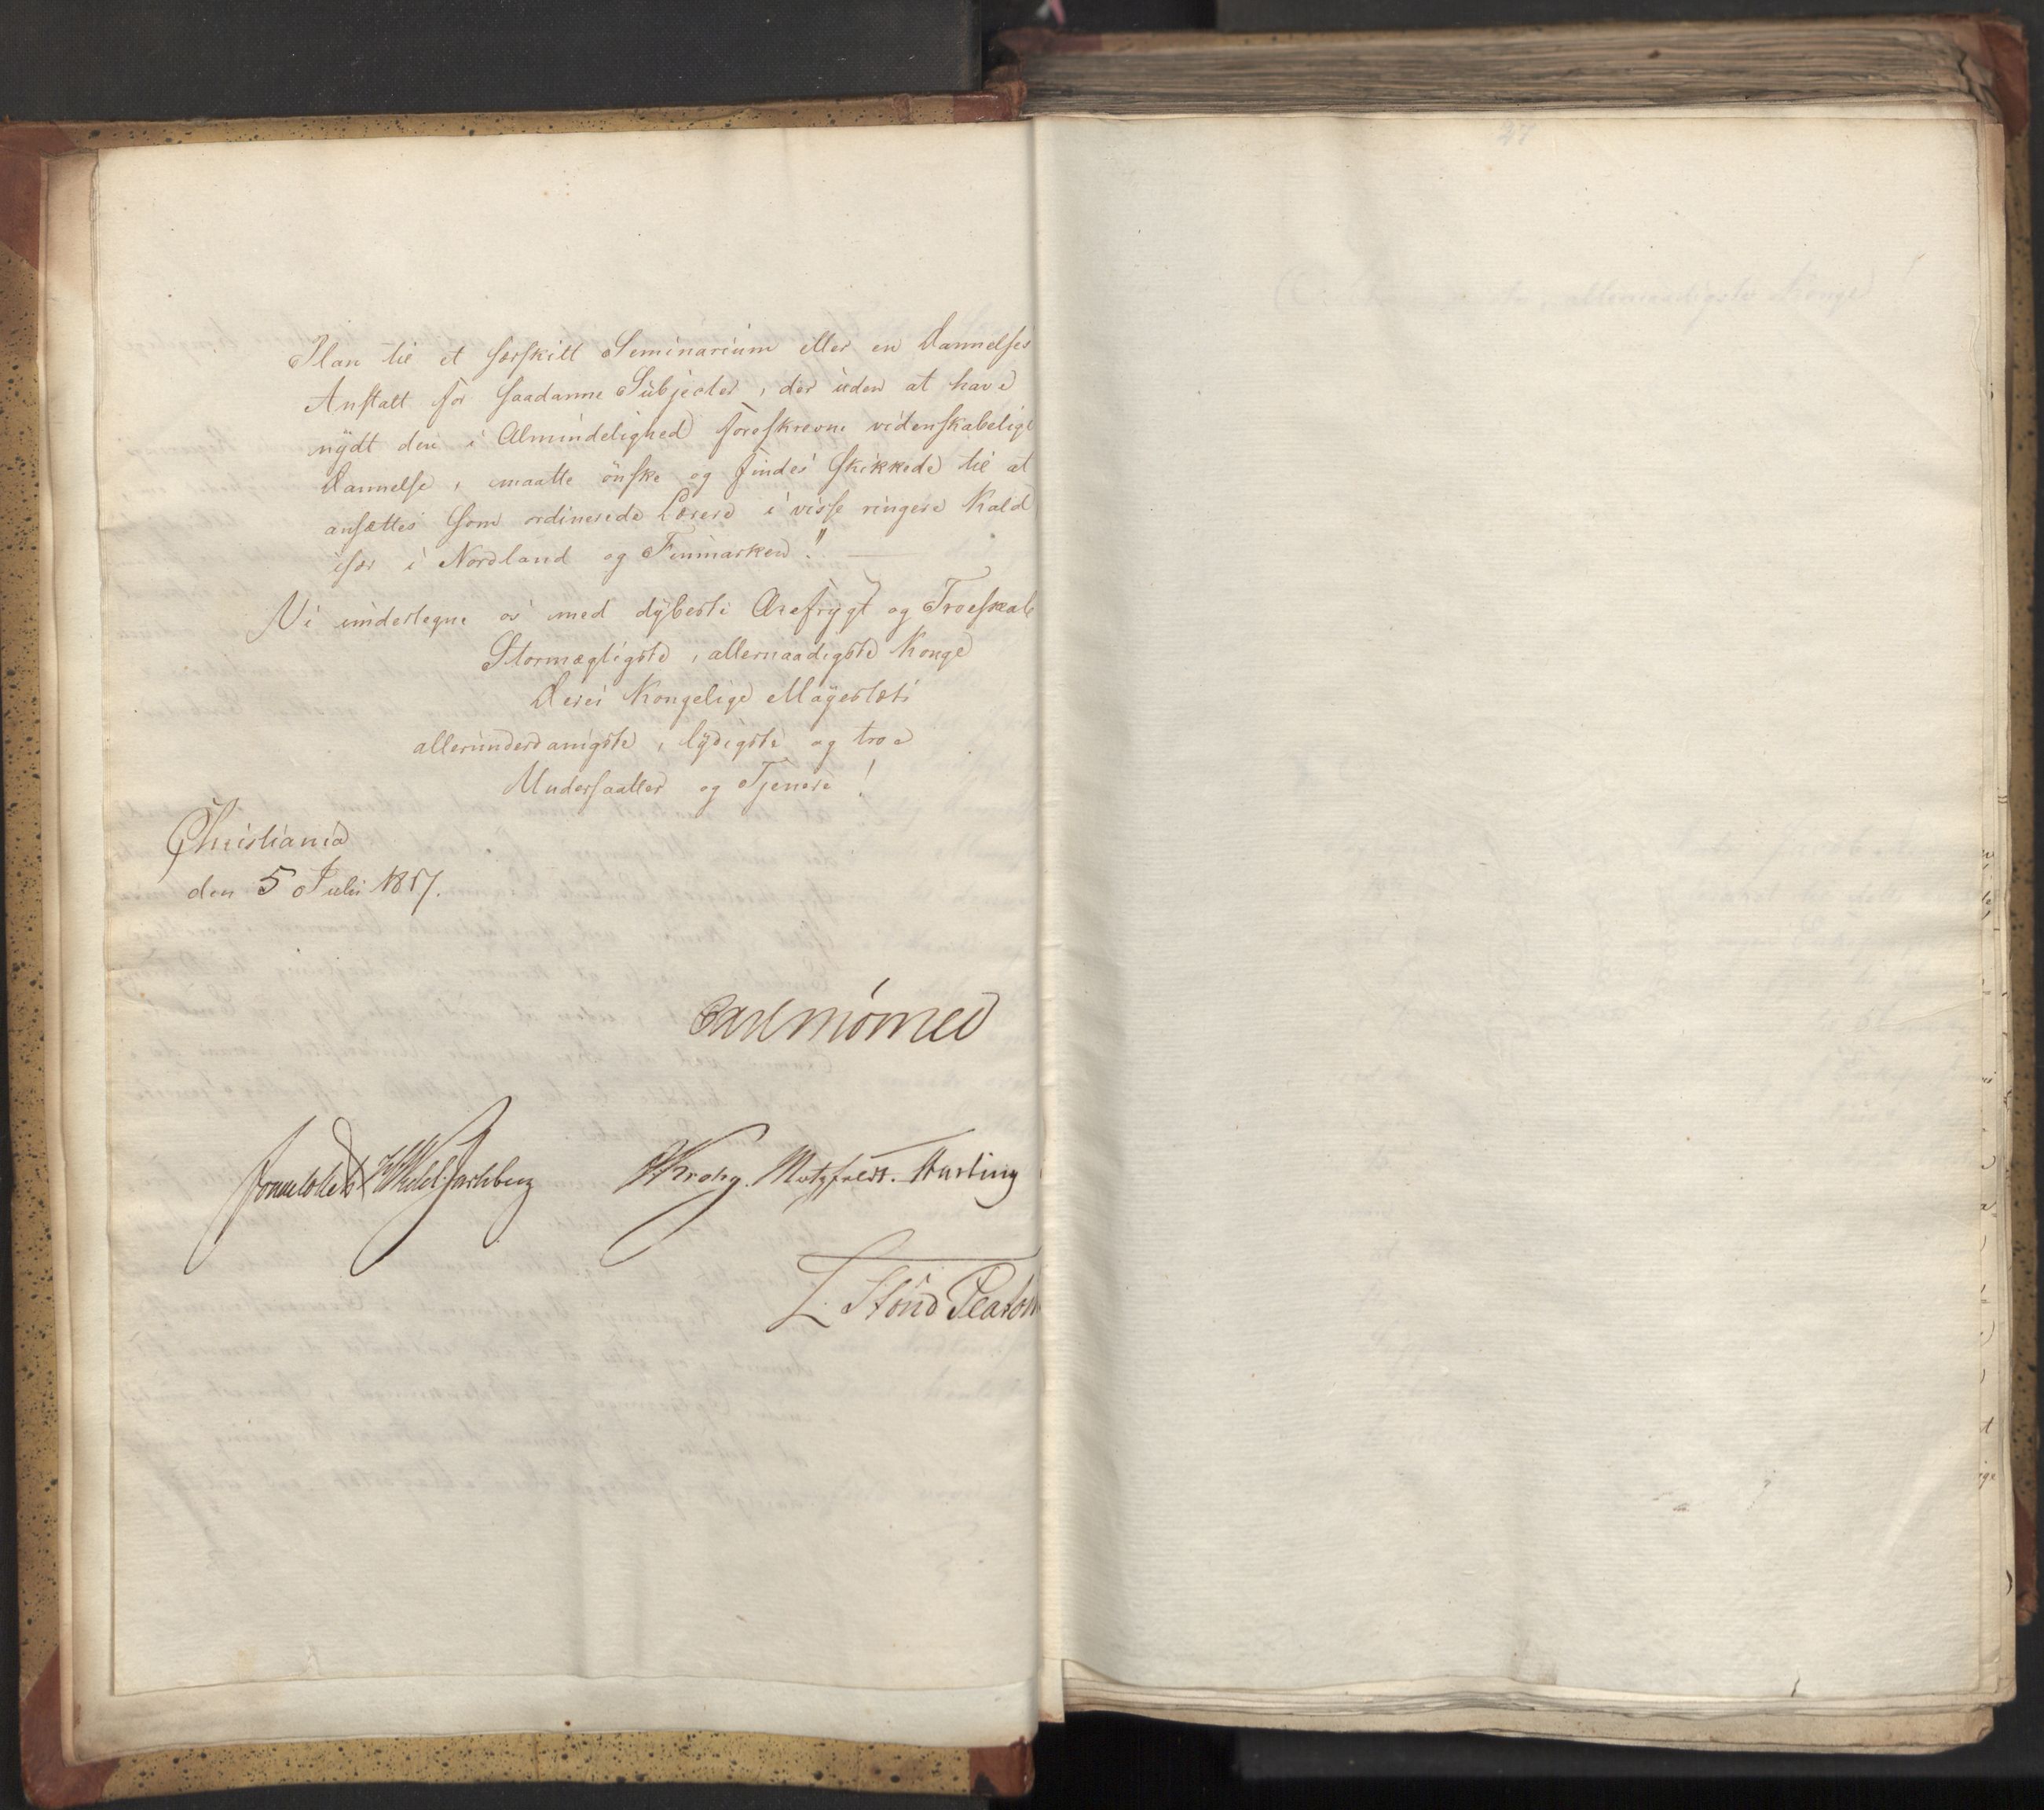 Plan til et særskilt Seminarium eller en Dannelses
Anstalt for saadanne Subjecter, der uden at have
nÿdt den i Almindelighed foreskrevne videnskabelige
Dannelse, maatte önske og findes skikkede til at
ansættes som ordinerede Lærere i visse ringere Kald
især i Nordland og Finmarken." —
Vi undertegne os med dÿbeste Ærefrÿgt og Troeskab
Stormægtigste, allernaadigste Konge
Deres Kongelige Mayestæts
allerunderdanigste, lÿdigste og troe
Undersaatter og Tjenere!
Christiania
den 5 Julii 1817.
Carl Mörner
Sommerhielm HWedel Jarlsberg Krohg. Motzfeldt. Harting
L. Stoud Platou
27
allernaadigste Konge!